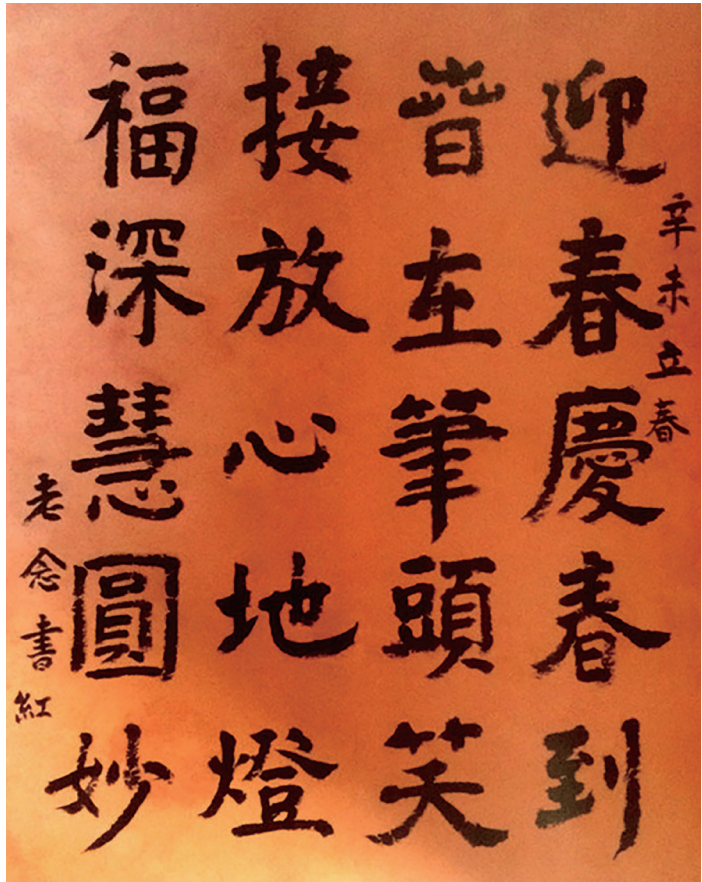 辛未立春
迎春慶春到
在筆頭笑
接放心地燈
福深慧圓妙
老念書紅